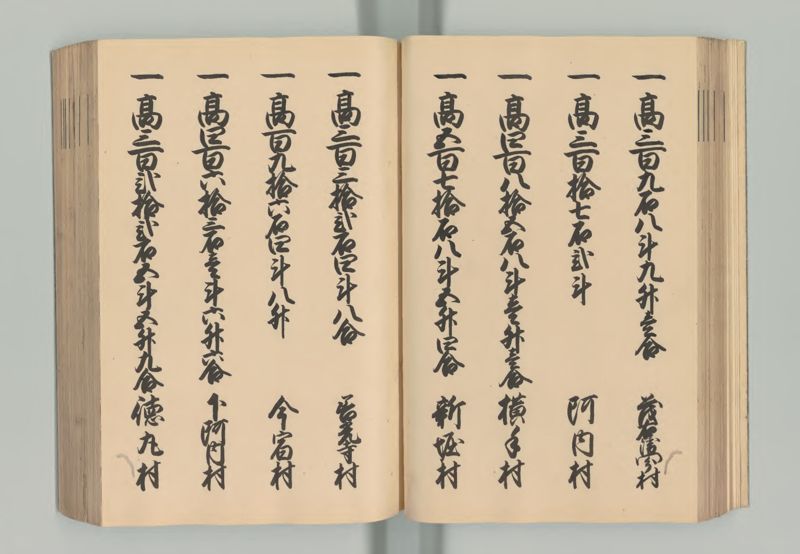 一 高三百九石八斗九升壱合
一 高三百拾七石弐斗 阿内村
一 高四百八拾五石八斗壱升壱合 横手村
一 高五百七拾石八斗五升四合 新堀村
一 高三百三拾弐石四斗八合 寺村
一 高百九拾六石四斗八升 今宿村
一 高四百六拾三石壱斗六升六合 下阿内村
一 高三百弐拾弐石五斗五升九合 徳丸村